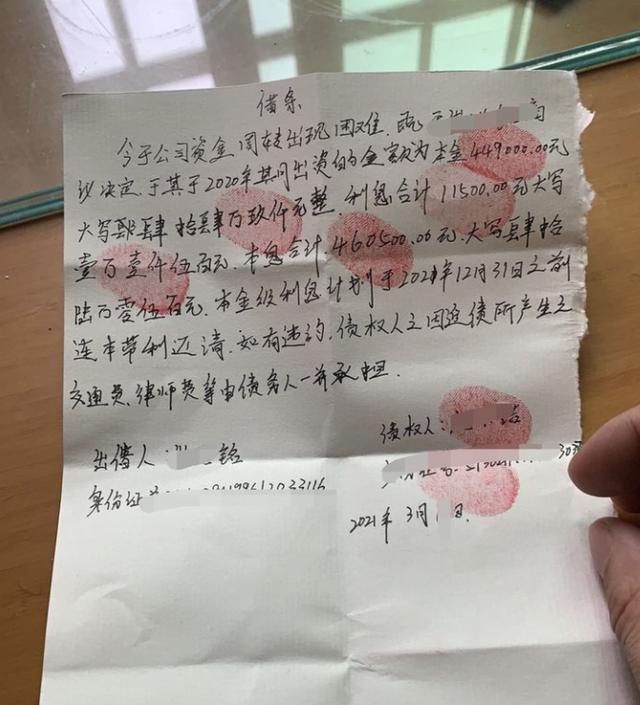 借条
今于公司资金周转出现困难.
议决定于其于2020年其间出资的金额为本金449000.00元
大写肆拾肆万玖仟元整.利息合计11500.00元大写
壹万壹仟伍百元.本息合计.460500.00元.大写肆拾
陆万零伍百元.本金级利息计划于2021年12月31日之前
连本带利还清.如有违约.债权人之因追债所产生之
交通费.律师费等由债务人一并承担.
出借人:铭
债权人:
身份证
2021年3月 日.